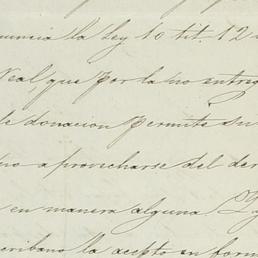 nuncia la ley 10 tit. 12
Real, que por la no entreg
de donacion permite su
no aprovecharse del der
en manera alguna.
cribano la acepto en form